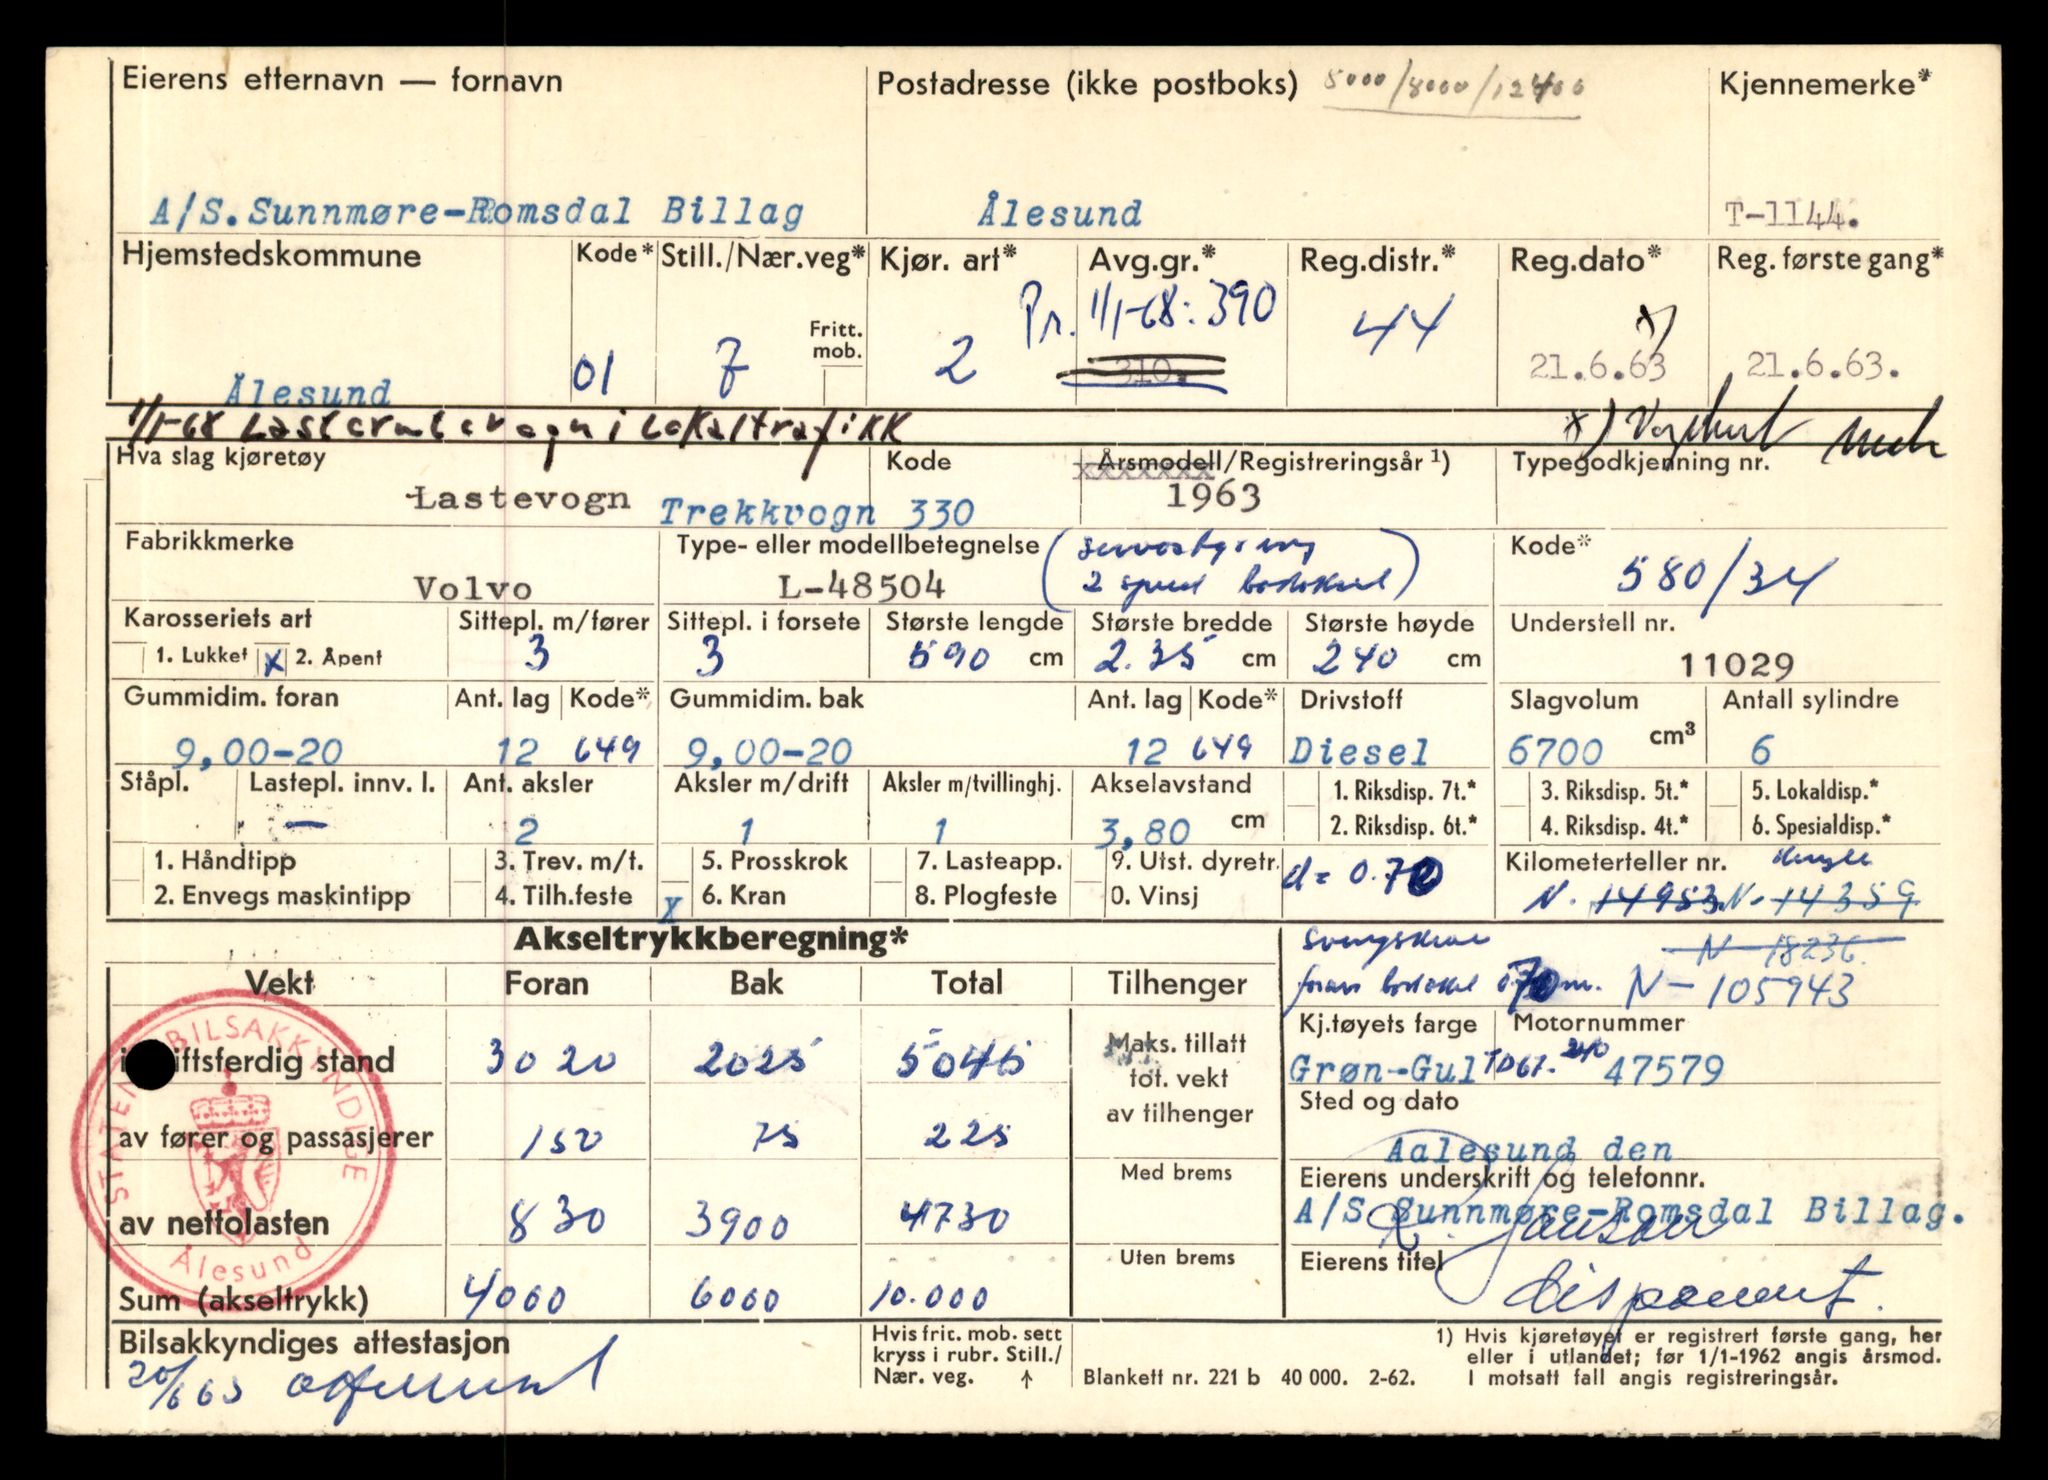 Eierens etternavn — fornavn
Postadresse (ikke postboks) 5000/8000/12400
Kjennemerke*
A/S. Sunnmøre-Romsdal Billag
Ålesund
T-1144.
Hjemstedskommune Kode* Still./Nær.veg* Kjør. art* Avg.gr.* Reg.distr.* Reg.dato* Reg. første gang*
Pr. 1/1-68: 390
Fritt. mob.
Ålesund 01 7 2 310. 44 21.6.63 21.6.63.
1/1-68 i Lokaltrafikk *)
Hva slag kjøretøy Kode Årsmodell/Registreringsår 1) Typegodkjenning nr.
Lastevogn Trekkvogn 330 1963
Fabrikkmerke Type- eller modellbetegnelse Kode*
Volvo L-48504 580/34
Karosseriets art Sittepl. m/fører Sittepl. i forsete Største lengde Største bredde Største høyde Understell nr.
1. Lukket x 2. Åpent 3 3 590 cm 2.35 cm 240 cm 11029
Gummidim. foran Ant. lag Kode* Gummidim. bak Ant. lag Kode* Drivstoff Slagvolum Antall sylindre
9,00-20 12 649 9,00-20 12 649 Diesel 6700 cm³ 6
Ståpl. Lastepl. innv. l. Ant. aksler Aksler m/drift Aksler m/tvillinghj. Akselavstand 1. Riksdisp. 7t.* 3. Riksdisp. 5t.* 5. Lokaldisp.*
— 2 1 1 3,80 cm 2. Riksdisp. 6t.* 4. Riksdisp. 4t.* 6. Spesialdisp.*
1. Håndtipp 3. Trev. m/t. 5. Prosskrok 7. Lasteapp. 9. Utst. dyretr. d = 0.70 Kilometerteller nr.
2. Envegs maskintipp 4. Tilh.feste X 6. Kran 8. Plogfeste 0. Vinsj N. 14953 N. 14359
Akseltrykkberegning*
N 18236.
Vekt Foran Bak Total Tilhenger
foran 70 m. N - 105943
Kj.tøyets farge Motornummer
i driftsferdig stand 3020 2025 5045
Maks. tillatt tot. vekt av tilhenger
Grøn-Gul TD67. 240 47579
Sted og dato
av fører og passasjerer 150 75 225
Aalesund den
Med brems
Eierens underskrift og telefonnr.
av nettolasten 830 3900 4730
A/S Sunnmøre-Romsdal Billag.
Uten brems
Eierens titel
disponent.
Sum (akseltrykk) 4000 6000 10.000
STATENS BILSAKKYNDIGE
Ålesund
Bilsakkyndiges attestasjon
20/6 63
Hvis frit. mob. sett
kryss i rubr. Still./
Nær. veg. ↑
Blankett nr. 221 b 40 000. 2-62.
1) Hvis kjøretøyet er registrert første gang, her
eller i utlandet; før 1/1-1962 angis årsmod.
I motsatt fall angis registreringsår.